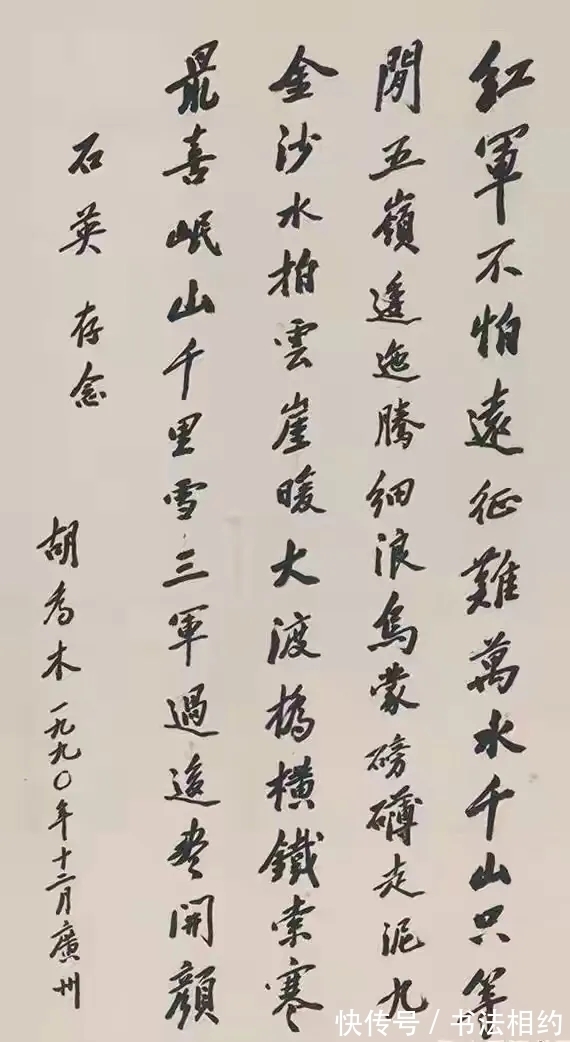 紅軍不怕遠征難萬水千山只等
閒五嶺逶迤騰細浪烏蒙磅礴走泥九
金沙水拍雲崖暖大渡橋橫鐵索寒
最喜岷山千里雪三軍過後盡開顏
石英 存念
胡喬木一九九〇年十二月廣州
快传号 / 书法相约